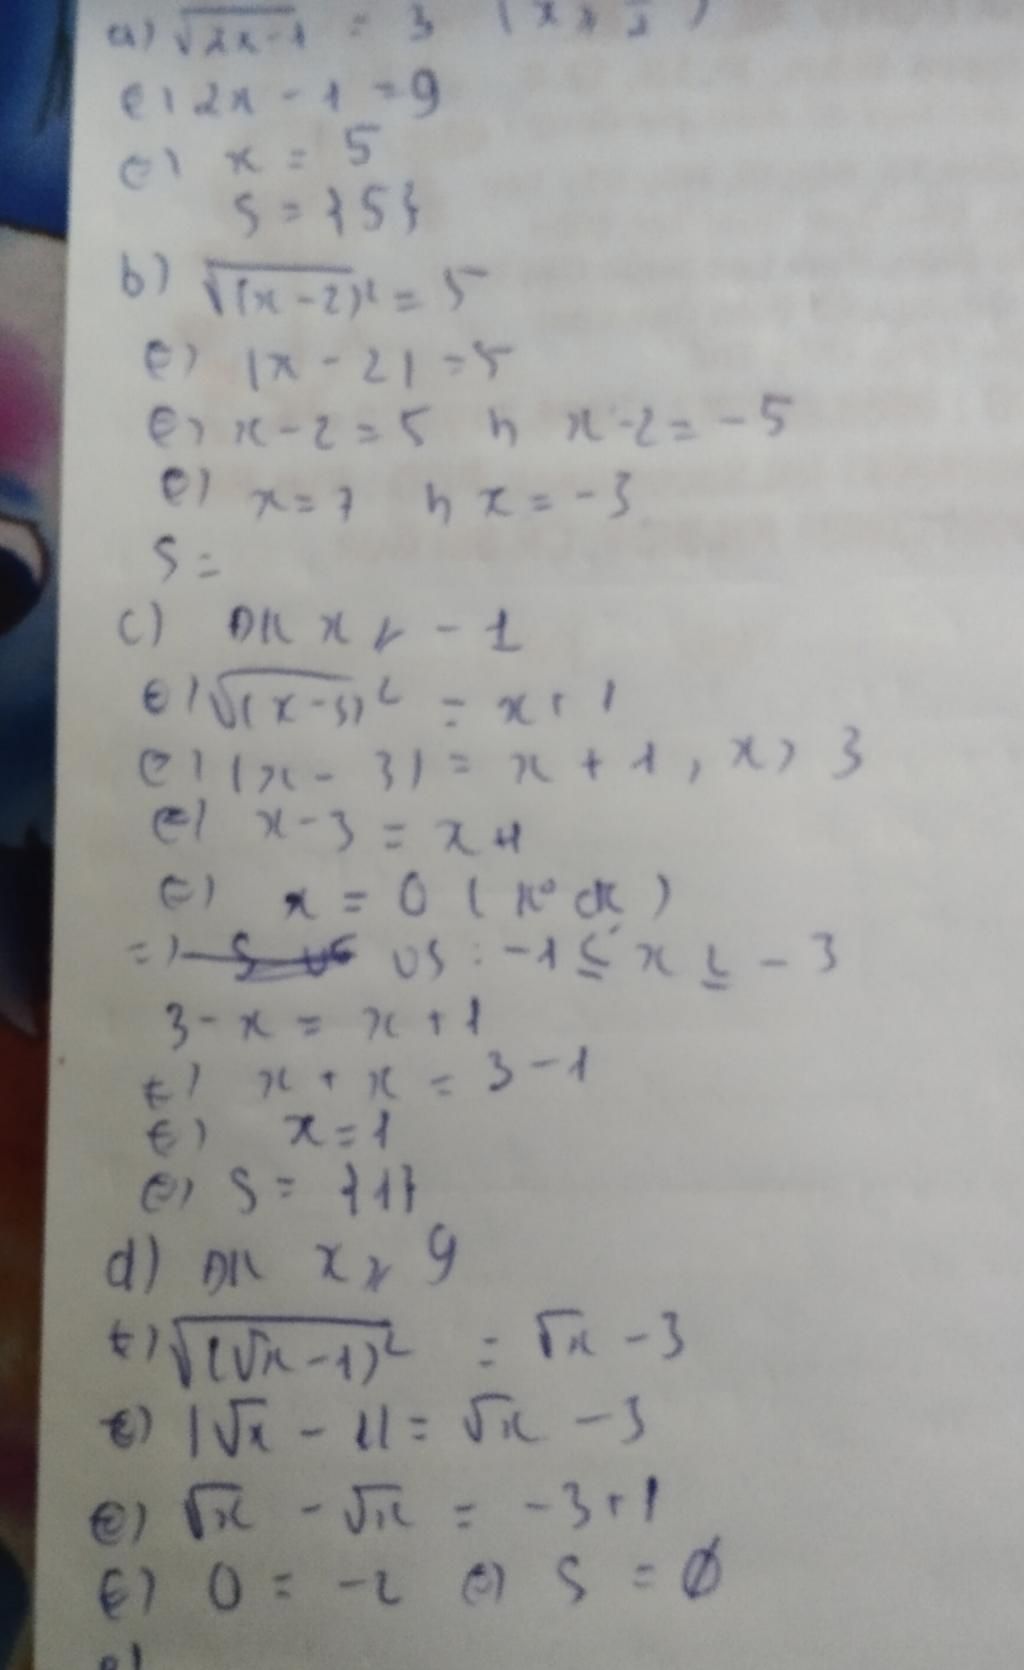 a) √2x-1 = 3 (x ≥ 1/2)
⇔ 2x - 1 = 9
⇔ x = 5
S = {5}
b) √(x-2)² = 5
⇔ |x - 2| = 5
⇔ x - 2 = 5 h x - 2 = -5
⇔ x = 7 h x = -3
S =
c) ĐK x ≥ -1
⇔ √(x-3)² = x + 1
⇔ |x - 3| = x + 1, x > 3
⇔ x - 3 = x + 1
⇔ x = 0 (ko đk)
=> vs : -1 ≤ x ≤ -3
3 - x = x + 1
⇔ x + x = 3 - 1
⇔ x = 1
⇔ S = {1}
d) ĐK x ≥ 9
⇔ √(√x - 1)² = √x - 3
⇔ |√x - 1| = √x - 3
⇔ √x - √x = -3 + 1
⇔ 0 = -2 ⇔ S = Ø